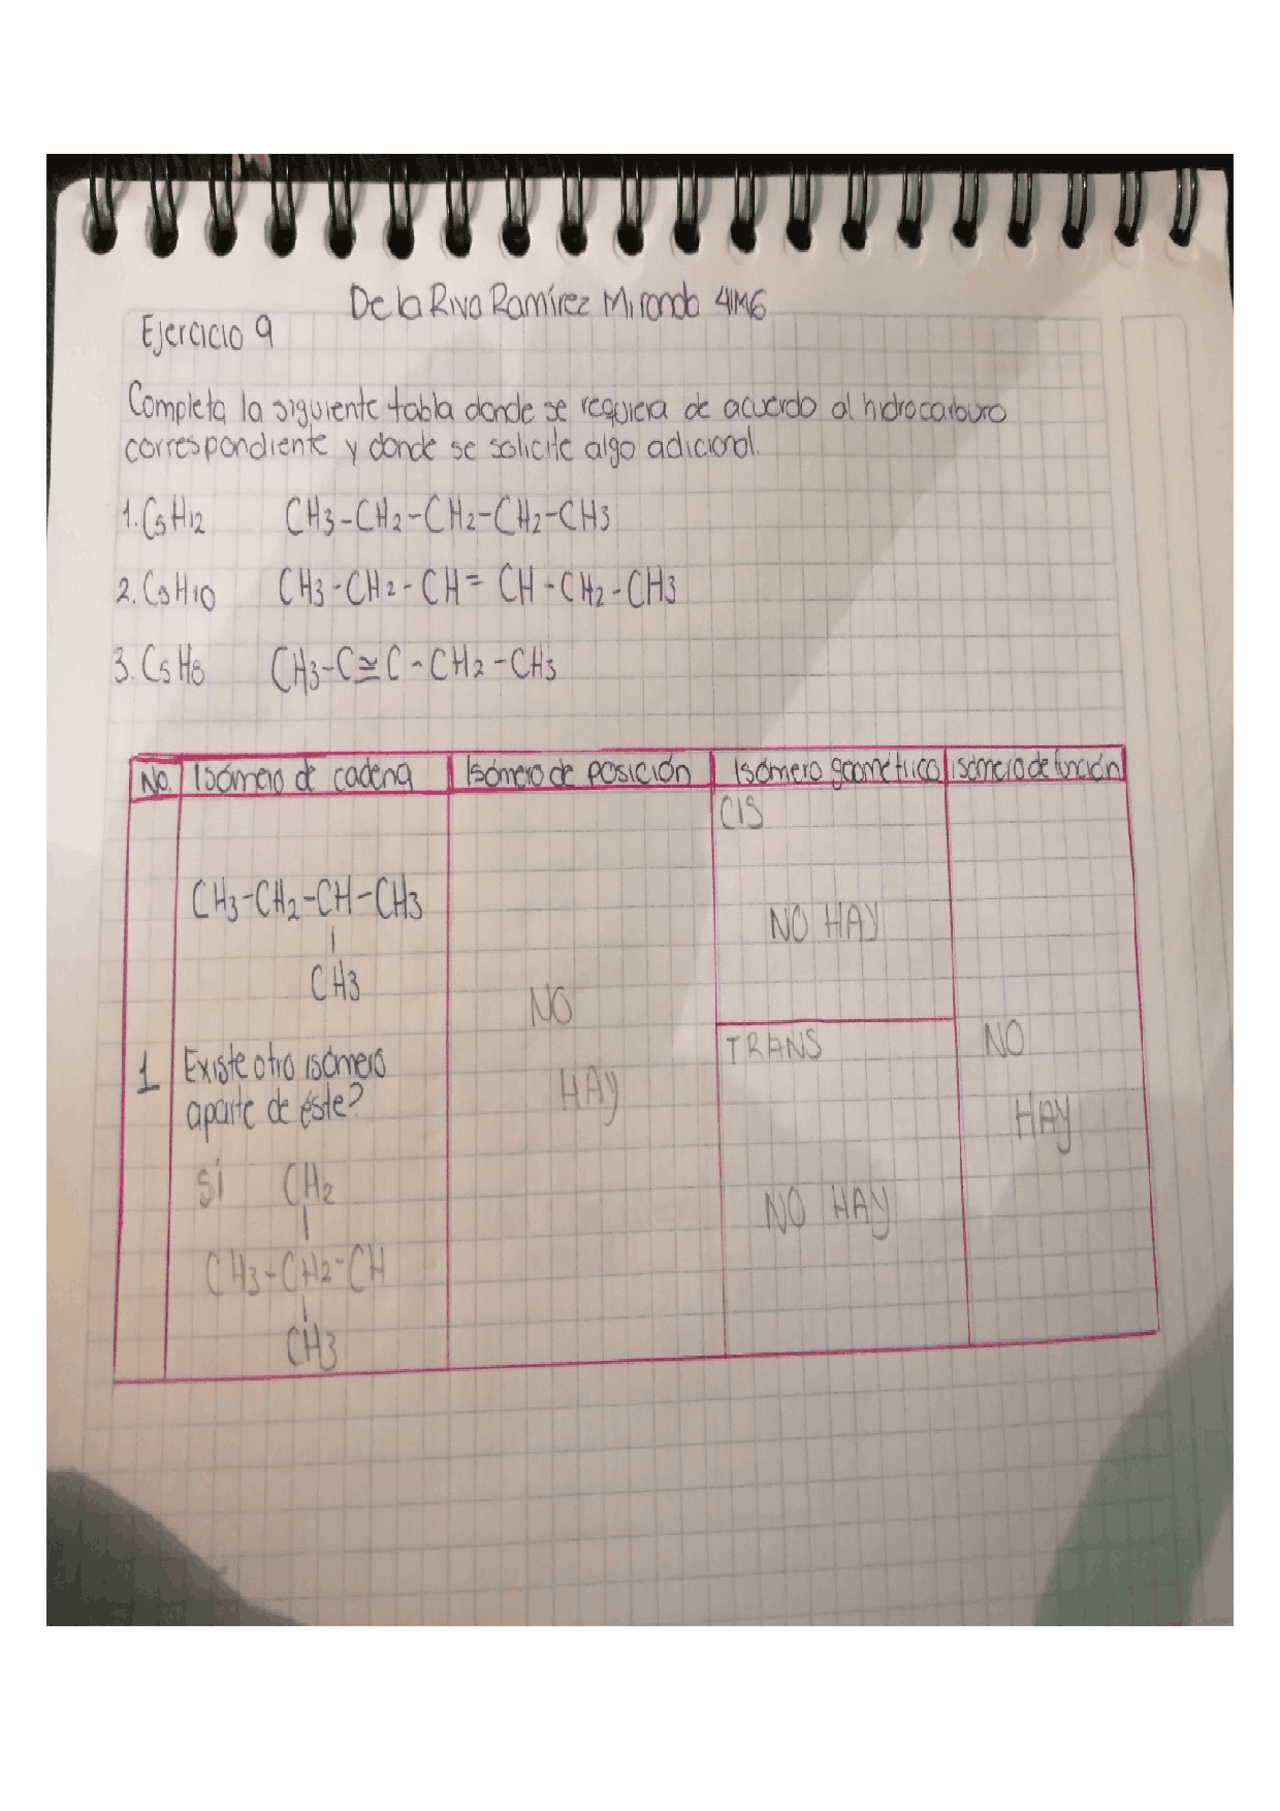 De la Riva Ramírez Miranda 4IM6
Ejercicio 9
Completa la siguiente tabla donde se requiera de acuerdo al hidrocarburo
correspondiente y donde se solicite algo adicional.
1. C5H12 CH3-CH2-CH2-CH2-CH3
2. C5H10 CH3-CH2-CH=CH-CH2-CH3
3. C5H8 CH3-C≅C-CH2-CH3
No. Isómero de cadena Isómero de posición Isómero geométrico isómero de función
CIS
CH3-CH2-CH-CH3
NO HAY
CH3
NO
TRANS
NO
1 Existe otro isómero
aparte de éste?
HAY
HAY
sí CH2
NO HAY
CH3-CH2-CH
CH3